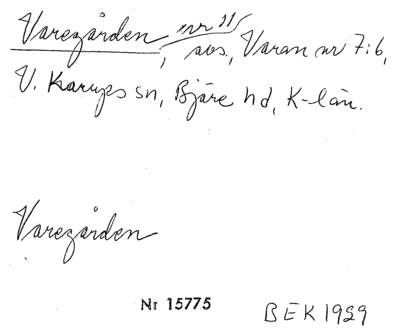 Varegården nr 11,
avs., Varan nr 7:6,
V. Karups sn, Bjäre hd, K-län.
Varegården
Nr 15775
BEK 1929